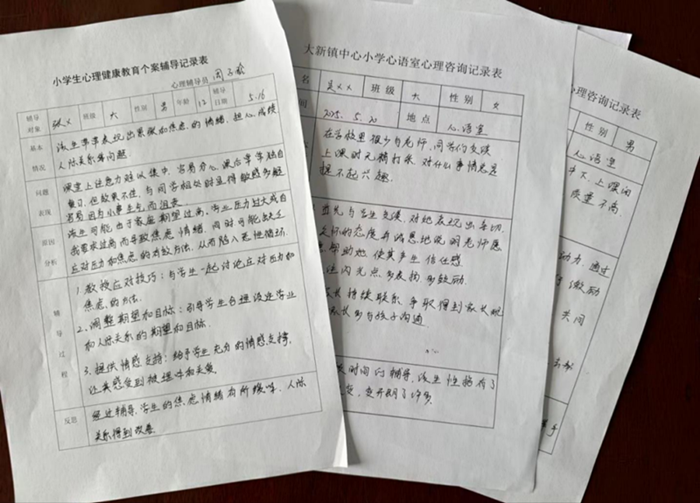 小学生心理健康教育个案辅导记录表
心理辅导员 周子
辅导对象 张×× 班级 六 性别 男 年龄 12 辅导日期 5.16
基本情况
该生常常表现出紧张和焦虑的情绪，担心成绩
人际关系等问题
问题表现
课堂上注意力难以集中，容易分心，课后常常独自
复习，但效果不佳，与同学相处时显得敏感多疑
容易因为小事生气而沮丧
原因分析
该生可能由于家庭期望过高，学业压力过大或自
我要求过高而导致焦虑情绪，同时可能缺乏
应对压力和焦虑的有效方法，从而陷入恶性循环
辅导过程
1. 教授应对技巧：与学生一起讨论应对压力和
焦虑的方法.
2. 调整期望和目标：引导学生合理设定学业
和人际关系的期望和目标.
3. 提供情感支持：给予学生充分的情感支持，
让其感受到被理解和关爱.
反思
经过辅导，学生的焦虑情绪有所缓解，人际
关系得到改善
大新镇中心小学心语室心理咨询记录表
名 吴×× 班级 六 性别 女
间 2025.5.20 地点 心语室
在学校里很少与老师、同学们交谈
上课时无精打采，对什么事情总是
提不起兴趣.
首先与学生交谈，对她表现出亲切、
友好的态度并诚恳地说明老师愿
意帮助她，使其产生信任感
闪光点，多表扬，多鼓励
持续联系，争取得到家长配
家长多与孩子沟通
时间的辅导，该生性格有了
变，变开朗了许多.
心理咨询记录表
性别 男
心语室
中下，上课闷
质量不高
动力，通过
鼓励
共同